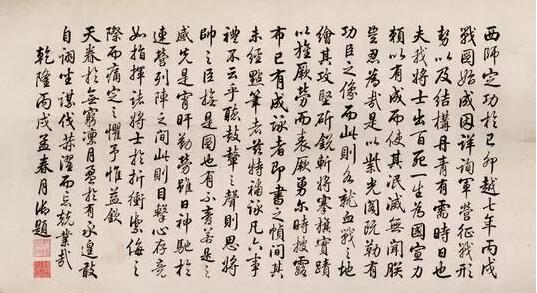 西師定功於己卯越七年丙戌
戰圖始成因詳詢軍營征戰形
勢以及結構丹青有需時日也
夫我將士出百死一生為國宣力
賴以有成而使其泯滅無聞朕
豈忍為哉是以紫光閣既勒有
功臣之像而此則各就血戰之地
繪其攻堅斫銳斬將搴旗實蹟
以旌厥勞而表厥勇爾時披露
布已有成詠者即書之幀間其
未經點筆者茲特補詠凡六事
禮不云乎聽鼓鼙之聲則思將
帥之臣撫是圖也有不啻若是之
感先是宵旰勤勞雖日神馳於
連營列陣之間此則目擊心存竟
如指揮諸將士於折衝禦侮之
際而痛定之懼予惟益欽
天眷於無窮凜月盈於有永遑敢
自詡坐謀伐濯而忘兢業哉
乾隆丙戌孟春月御題